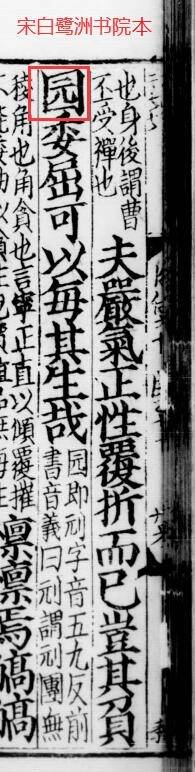 宋白鹭洲书院本
也身後謂曹
不受禪也
夫嚴氣正性覆折而已豈其員
园委屈可以每其生哉
园即刓字音五九反前
書音義曰刓謂刓團無
稜角也角貪也言寧正直以傾覆摧
凛凛焉皜皜